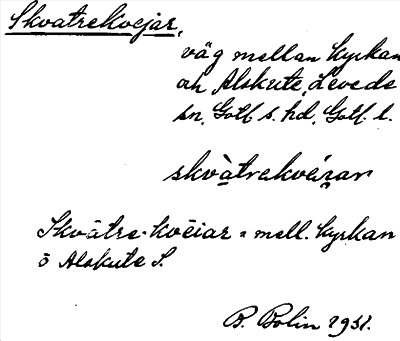 Skvatrekvejar,
väg mellan kyrkan
och Alskute, Levede
sn, Gotl. s. hd, Gotl. l.
skvàtrekvéi̯ar
Skvätre-kvëiar = mell. kyrkan
o Alskute S.
B. Bolin 1931.